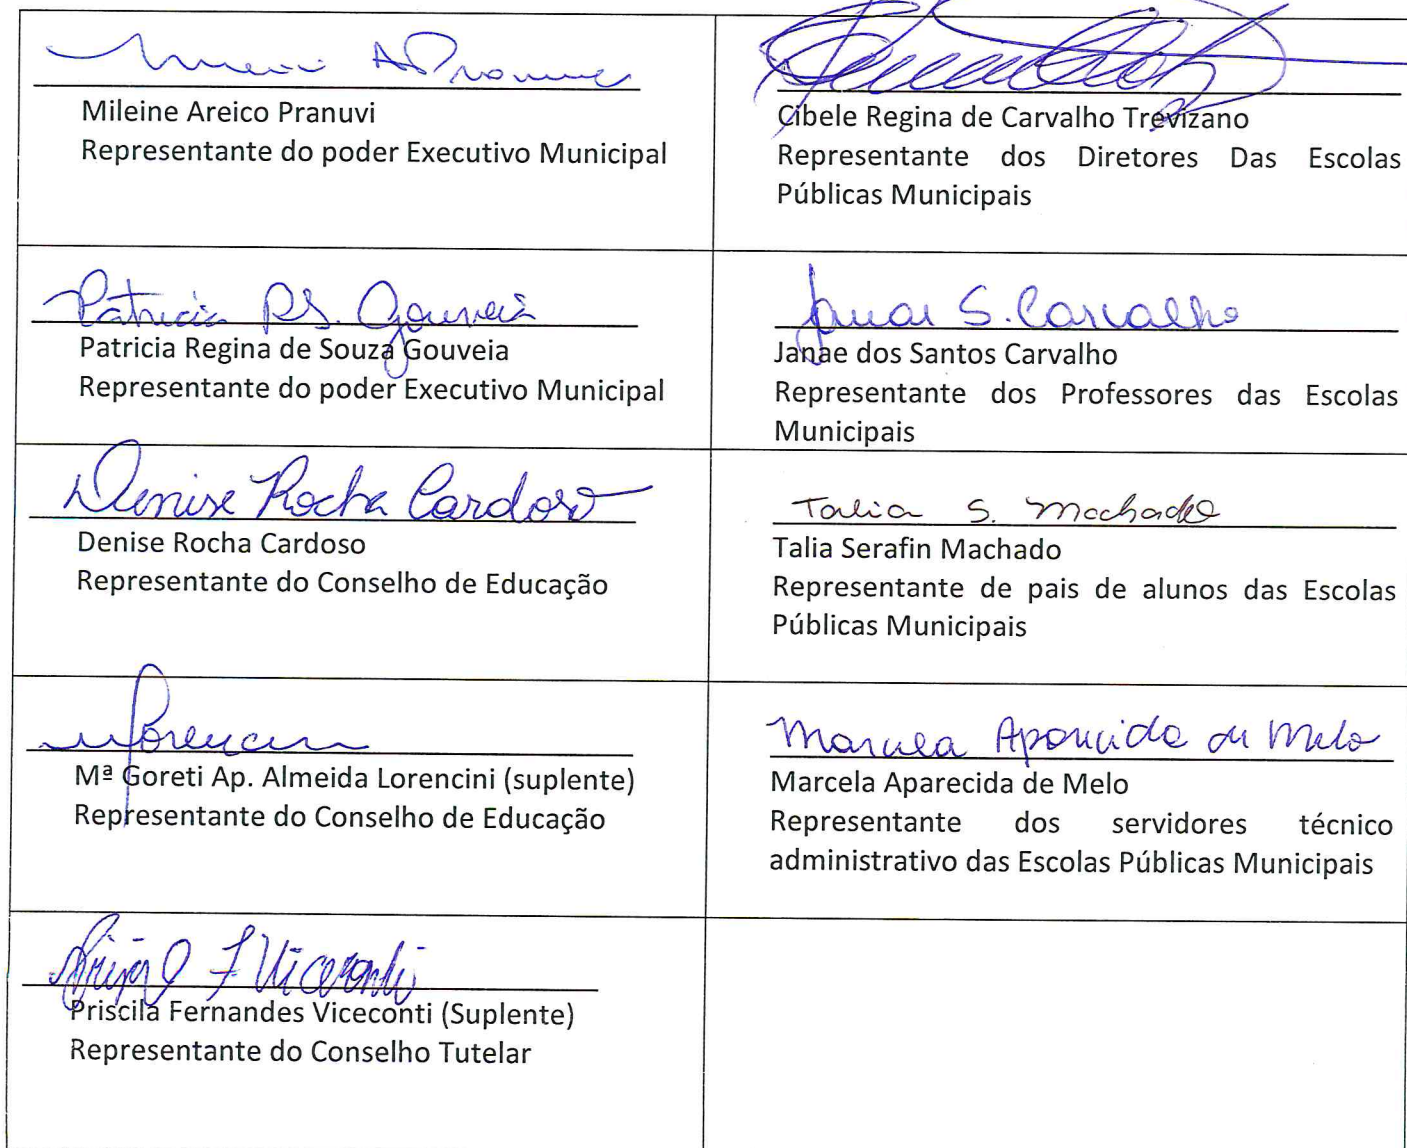 Mileine Areico Pranuvi
Representante do poder Executivo Municipal
Cibele Regina de Carvalho Trevizano
Representante dos Diretores Das Escolas
Públicas Municipais
Patricia RS. Gouveia
Patricia Regina de Souza Gouveia
Representante do poder Executivo Municipal
Janae S. Carvalho
Janae dos Santos Carvalho
Representante dos Professores das Escolas
Municipais
Denise Rocha Cardoso
Denise Rocha Cardoso
Representante do Conselho de Educação
Talia S. Machado
Talia Serafin Machado
Representante de pais de alunos das Escolas
Públicas Municipais
Mª Goreti Ap. Almeida Lorencini (suplente)
Representante do Conselho de Educação
Marcela Aparecida de Melo
Marcela Aparecida de Melo
Representante dos servidores técnico
administrativo das Escolas Públicas Municipais
F Viceconti
Priscila Fernandes Viceconti (Suplente)
Representante do Conselho Tutelar